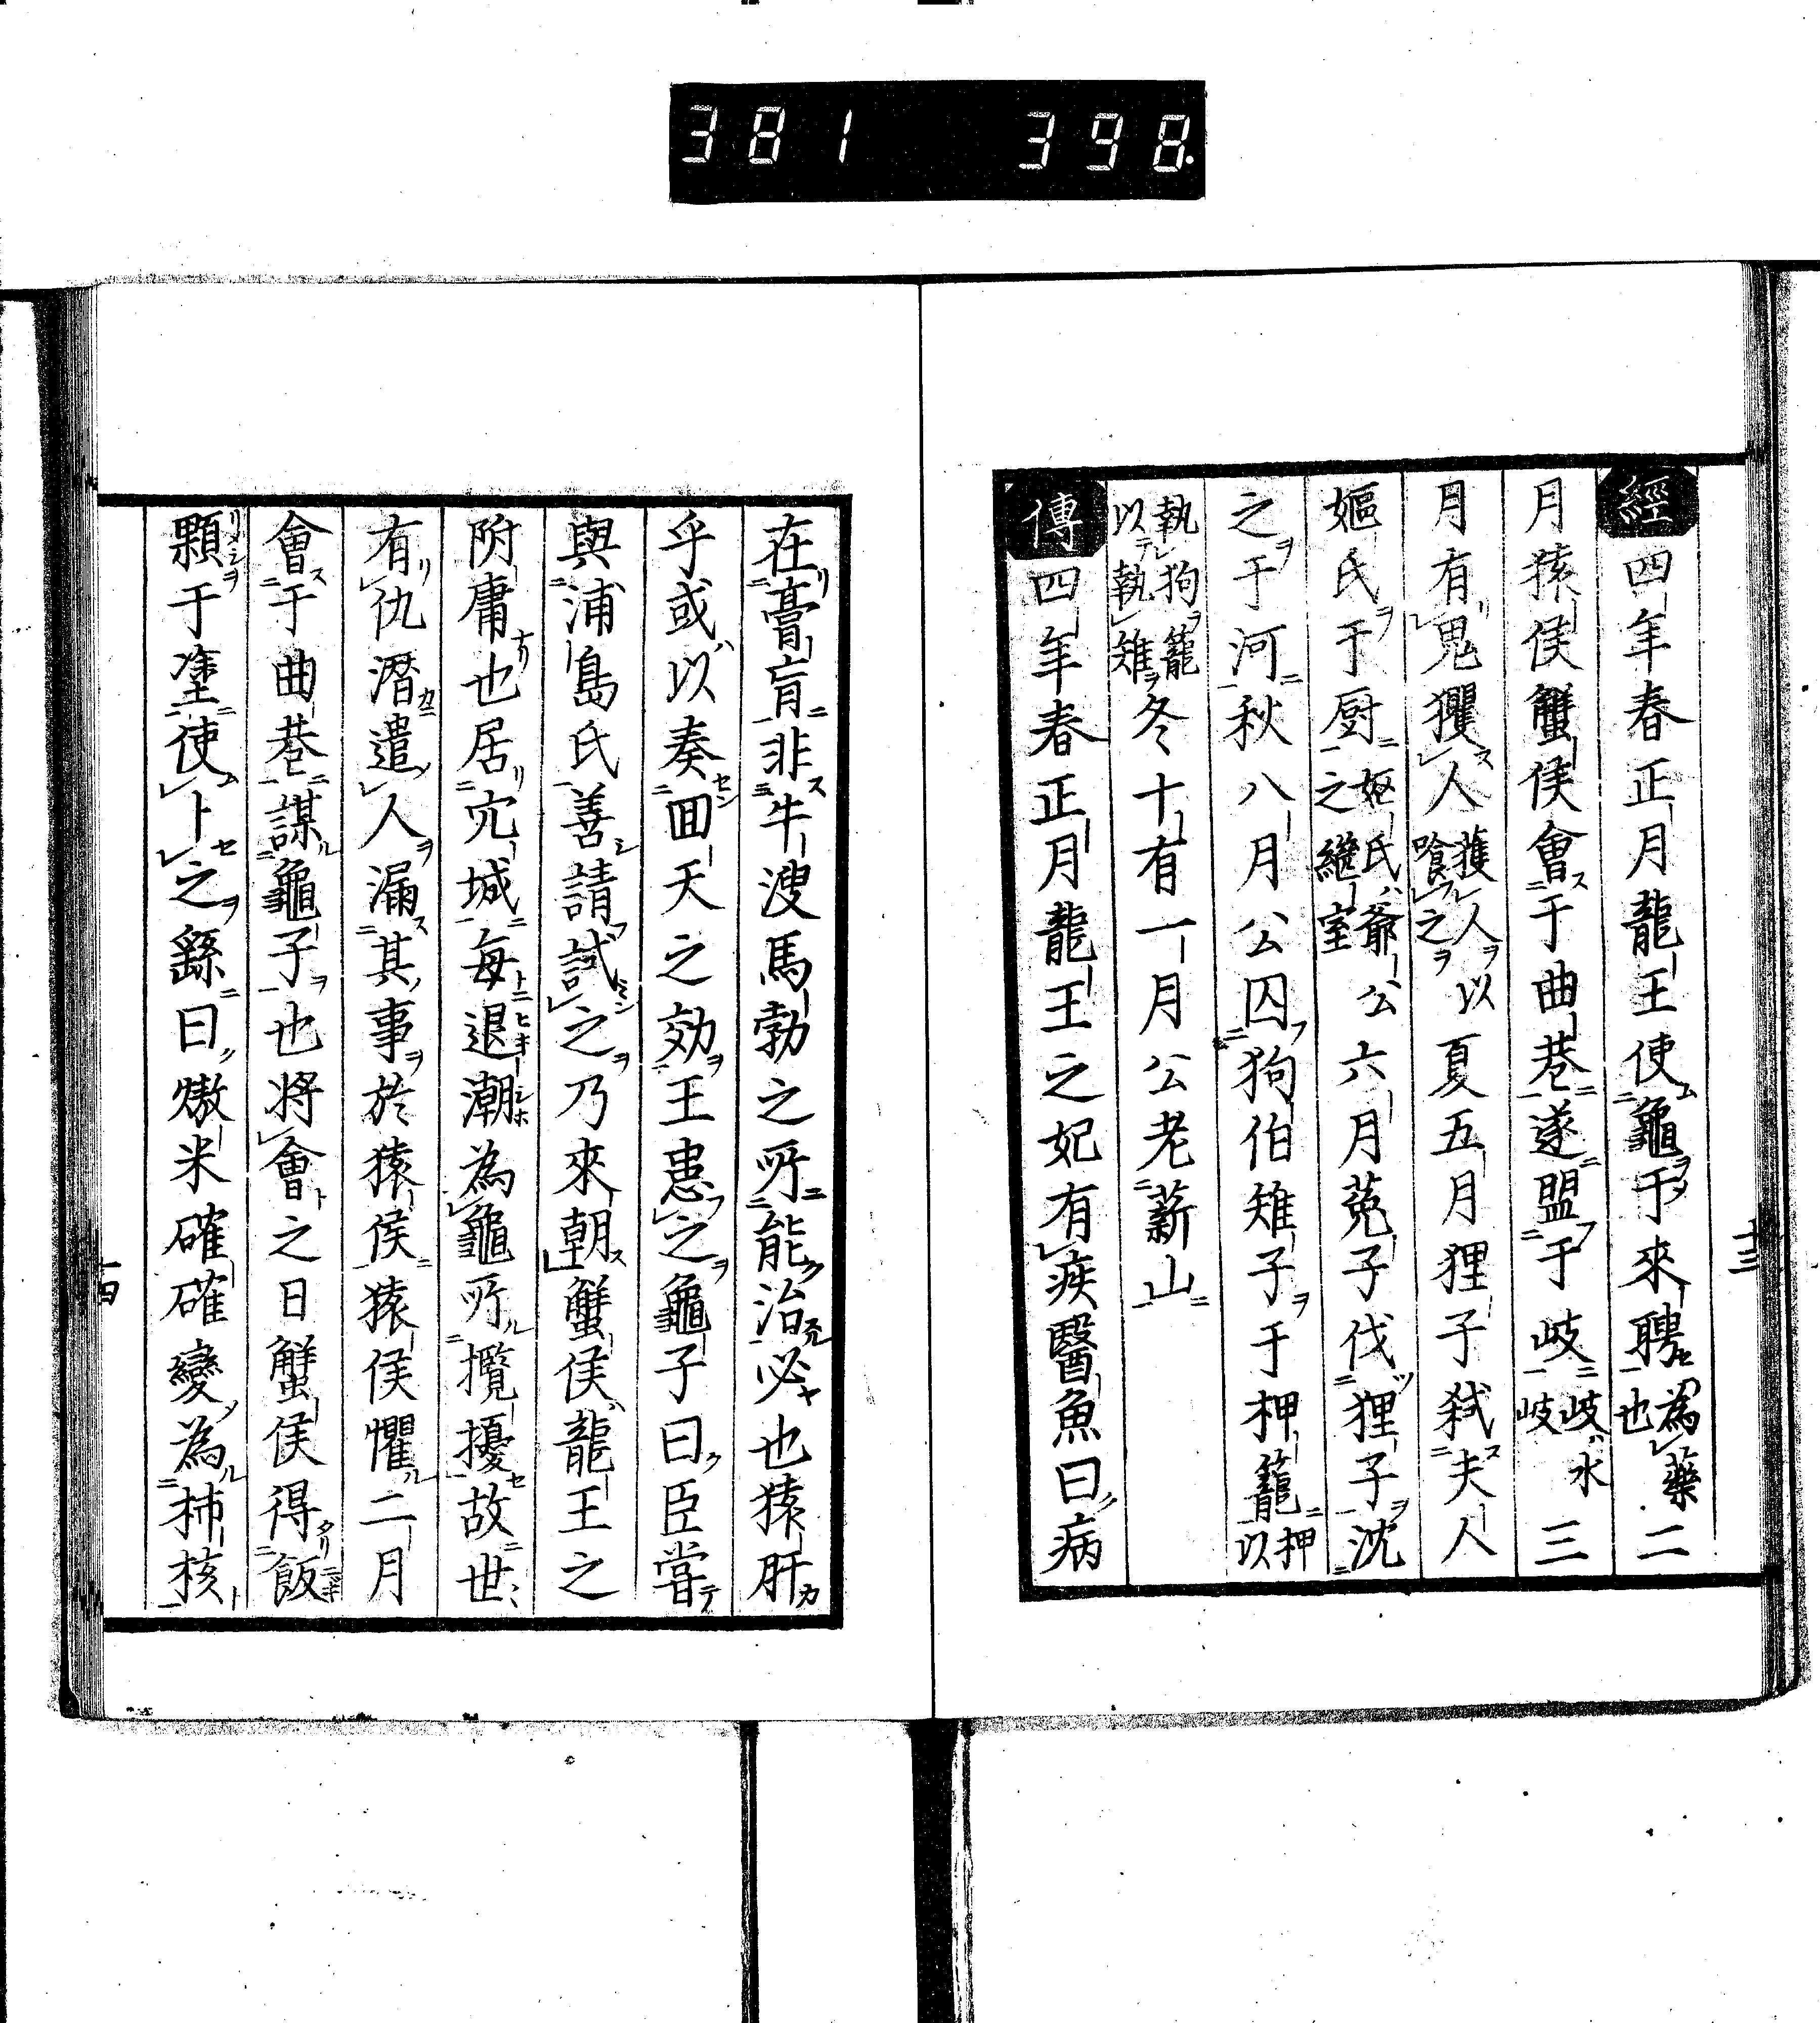 381 398.
經四年春正月龍王使龜于來聘為藥也二
月猿侯蟹侯會于曲巷遂盟于岐岐水岐三
月有鬼玃人獲人以喰之夏五月狸子弑夫人
嫗氏于厨嫗氏爺公之継室六月菟子伐狸子沈
之于河秋八月公囚狗伯雉子于柙籠柙以
執狗籠以執雉冬十有一月公老薪山
傳四年春正月龍王之妃有疾醫魚曰病
十三
在膏肓非牛溲馬勃之所能治必也猿肝
乎或以奏回天之効王患之龜子曰臣嘗
與浦島氏善請試之乃來朝蟹侯龍王之
附庸也居穴城每退潮為龜所攪擾故世
有仇潛遣人漏其事於猿侯猿侯懼二月
會于曲巷謀龜子也將會之日蟹侯得飯
顆于塗使卜之繇曰熬米確確變為柿核